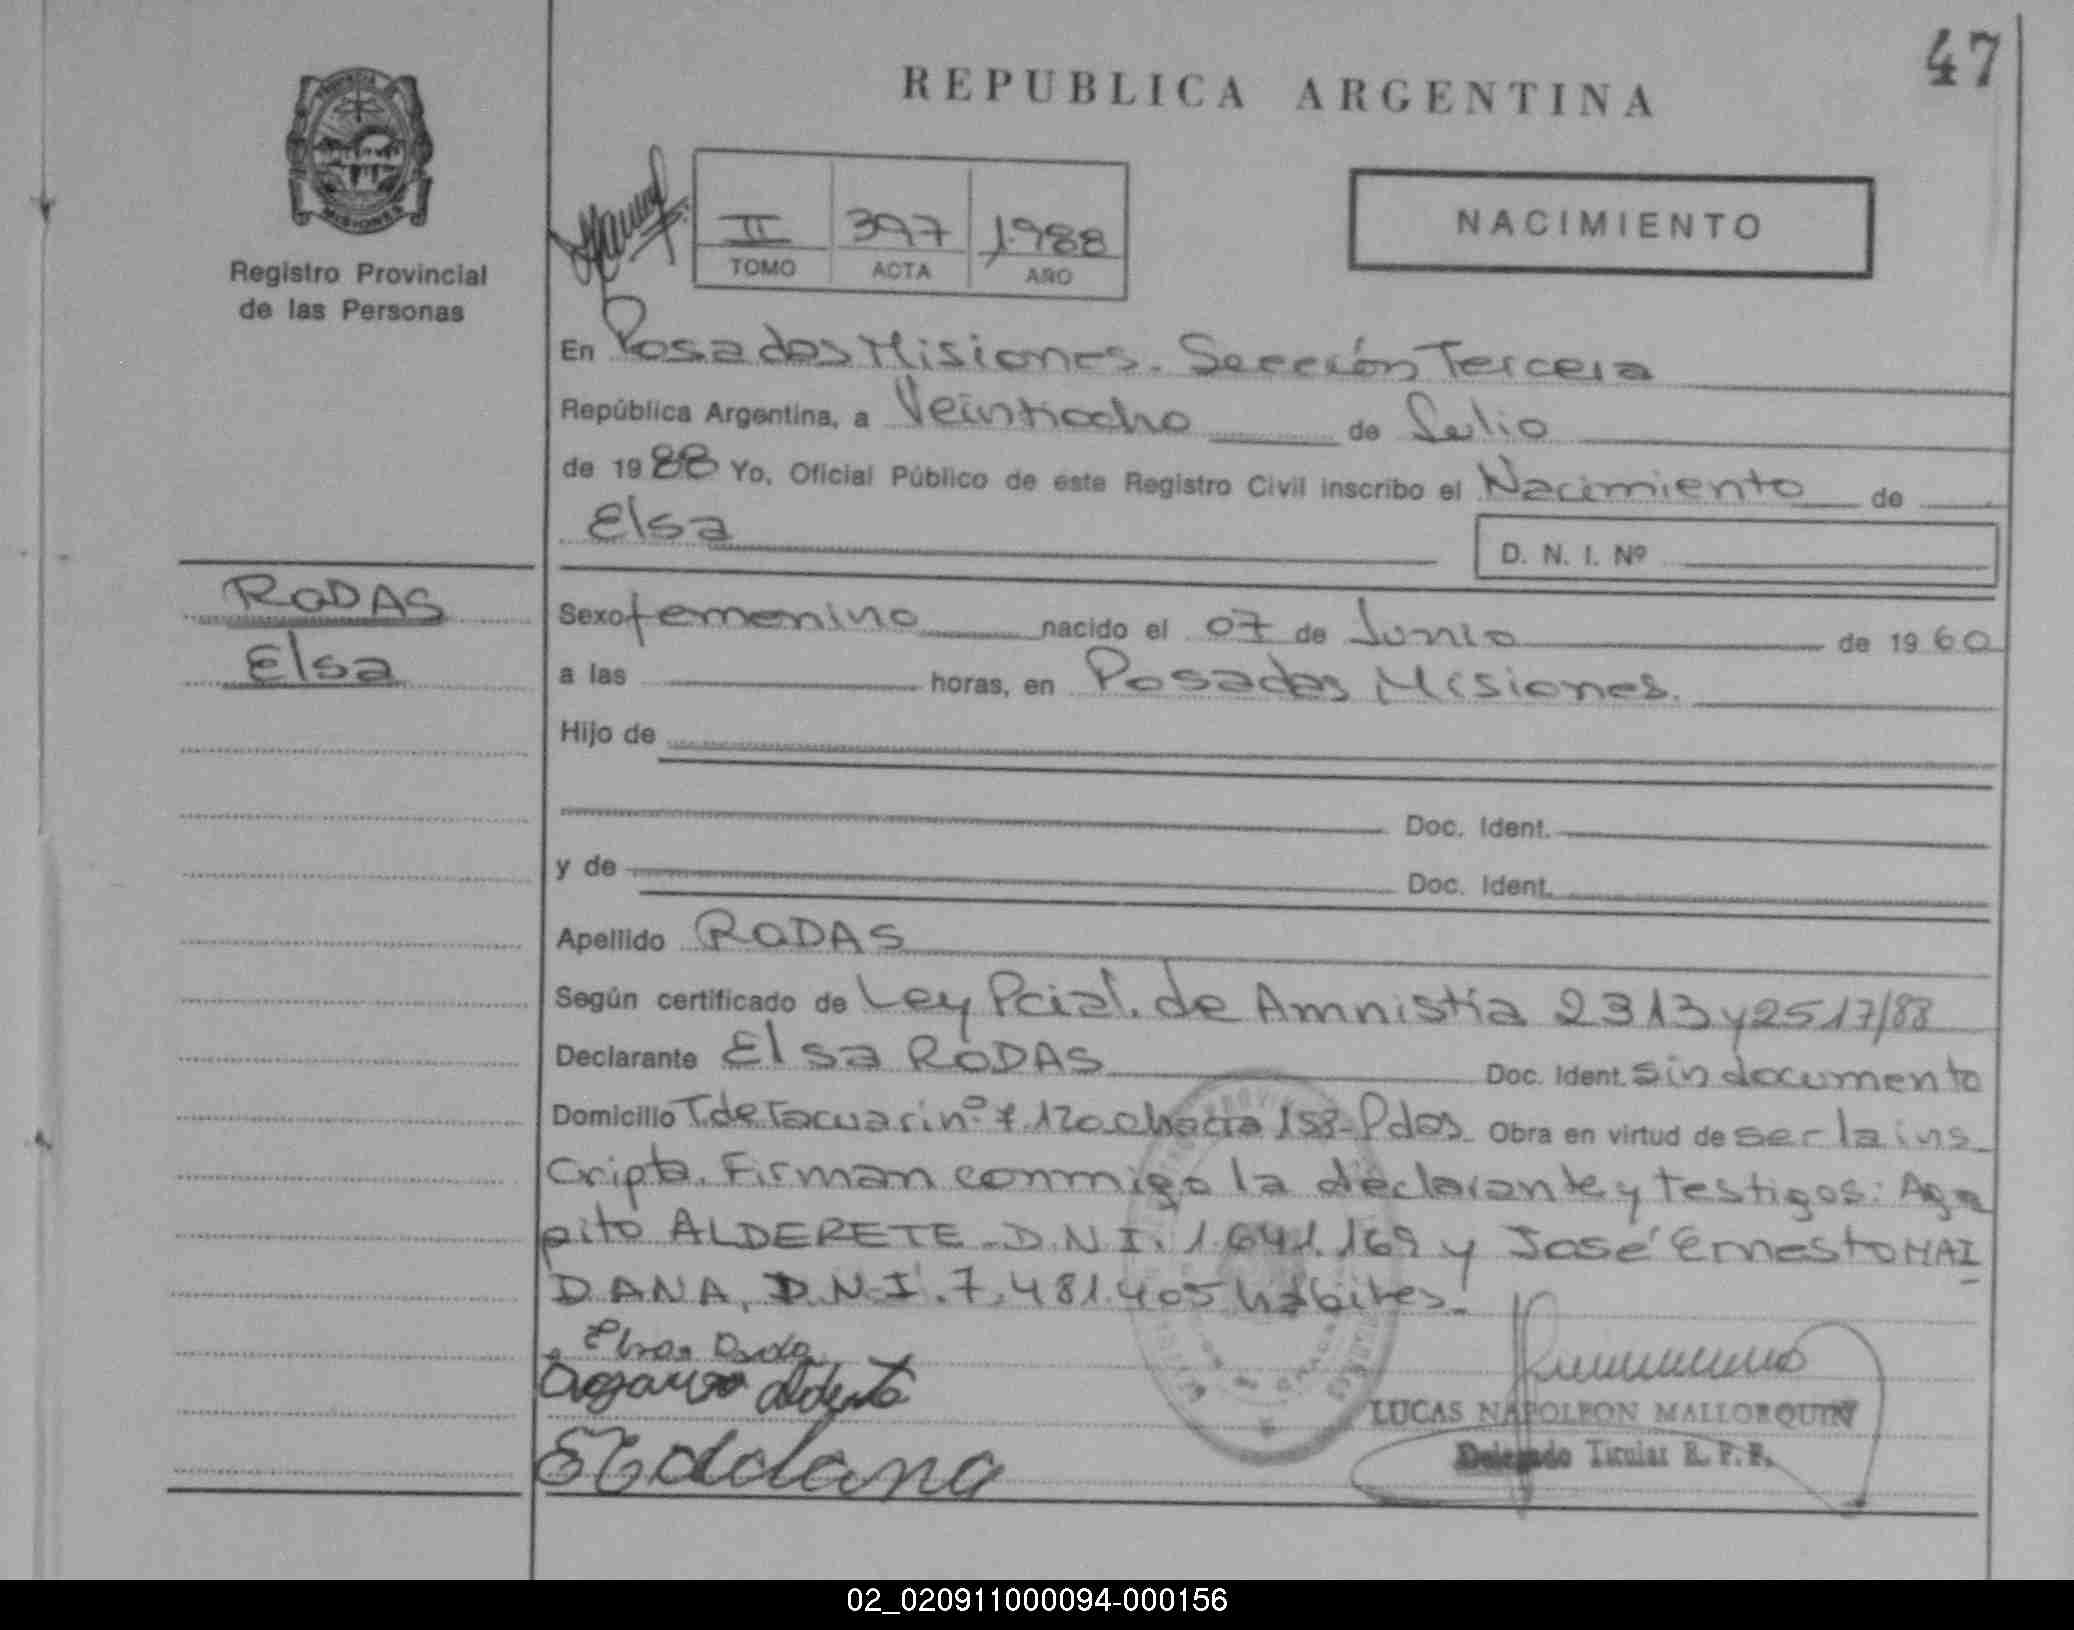 47
REPUBLICA ARGENTINA
PROVINCIA
MISIONES
Registro Provincial
de las Personas
II 397 1988
TOMO ACTA AÑO
NACIMIENTO
En Posadas Misiones. Sección Tercera
República Argentina, a Veintiocho de Julio
de 1988 Yo, Oficial Público de este Registro Civil inscribo el Nacimiento de
Elsa
D. N. I. Nº
RODAS
Elsa
Sexo femenino nacido el 07 de Junio de 1960
a las horas, en Posadas Misiones.
Hijo de
Doc. Ident.
y de Doc. Ident.
Apellido RODAS
Según certificado de Ley Pcial. de Amnistía 2313 y 2517/88
Declarante Elsa RODAS Doc. Ident. sin documento
Domicilio T. de Tacuari nº 7.120 chacra 158- Pdas. Obra en virtud de ser la ins_
cripta. Firman conmigo la declarante y testigos: Aga
pito ALDERETE. D.N.I. 1.641.169 y José Ernesto MAI
DANA, D.N.I. 7.481.405 hábiles.
LUCAS NAPOLEON MALLORQUIN
Delegado Titular R. P. P.
02_020911000094-000156